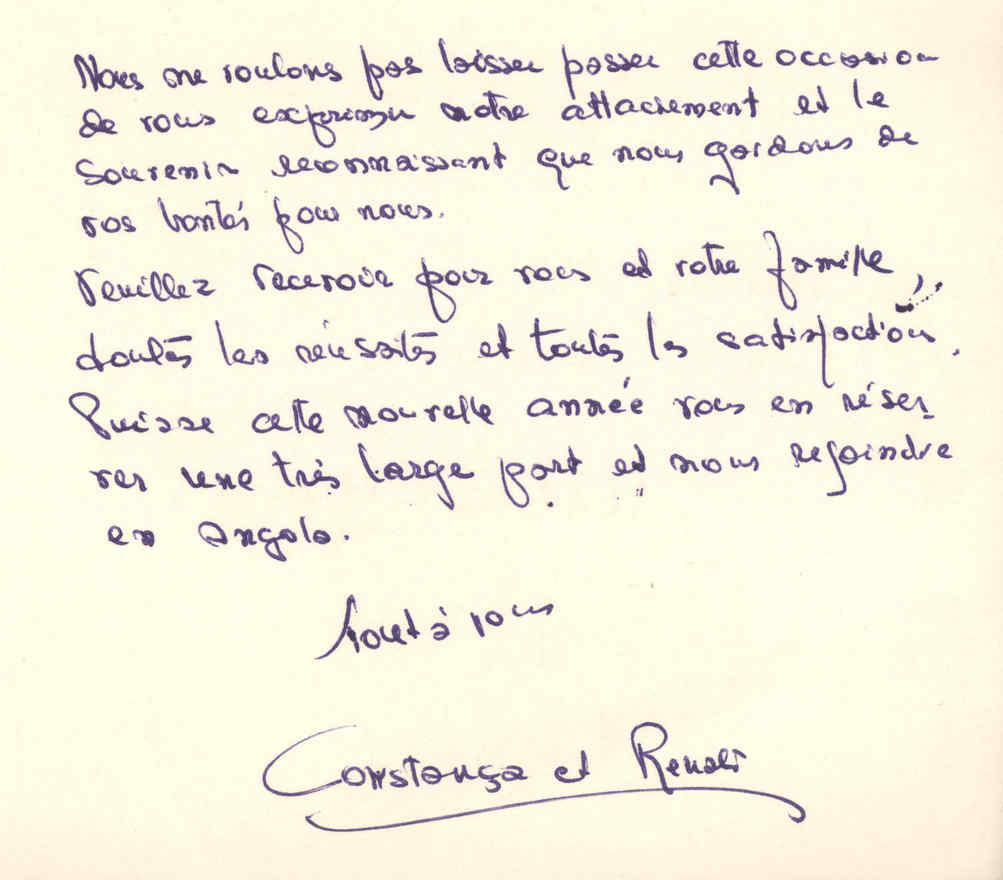 Nous ne voulons pas laisser passer cette occasion
de vous exprimer notre attachement et le
souvenir reconnaissant que nous gardons de
vos bontés pour nous.
Veuillez recevoir pour vous et votre famille,
toutes les réussites et toutes les satisfactions.
Puisse cette nouvelle année vous en réser_
ver une très large part et nous rejoindre
en Angola.
Tout à vous
Constança et